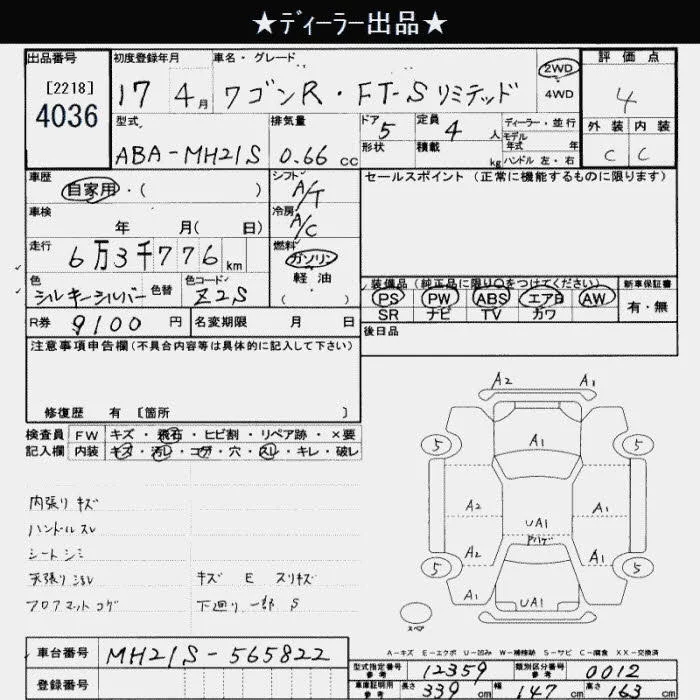 ★ディーラー出品★
出品番号 初度登録年月 車名・グレード 2WD 評価点
[2218]
4036 17 4月 ワゴンR・FT-Sリミテッド 4WD 4
型式 排気量 ドア 5 定員 4人 ディーラー・並行 外装 内装
ABA-MH21S 0.66cc 形状 積載 kg モデル年式 年 ハンドル 左・右 C C
車歴 シフト A/T セールスポイント (正常に機能するものに限ります)
自家用・( )
車検 冷房 A/C
年 月( 日)
走行 燃料
6万3千776km ガソリン
色 色替 色コード 軽油 装備品 (純正品に限り○をつけてください) 新車保証書
シルキーシルバー Z2S ( ) PS PW ABS エアB AW 有・無
SR ナビ TV カワ
R券 9100円 名変期限 月 日 後日品
注意事項申告欄(不具合内容等は具体的に記入して下さい)
修復歴 有 [箇所 ]
検査員 FW キズ・飛石・ヒビ割・リペア跡・×要
記入欄 内装 キズ・汚レ・コゲ・穴・スレ・キレ・破レ
A2 A1
5 A1 5
A2 A1
UA1
内張りキズ
ハンドルスレ
シートシミ
A2 A1
5 5
キズ E スリキズ
フロアマットコゲ 下廻り一部S
A1 UA1
スペア
A-キズ E-エクボ U-凹み W-補修跡 S-サビ C-腐食 XX-交換済
車台番号 MH21S-565822
型式指定番号 参考 12359 類別区分番号 参考 0012
登録番号
車庫証明用 参考 長さ 339cm 幅 147cm 高さ 163cm